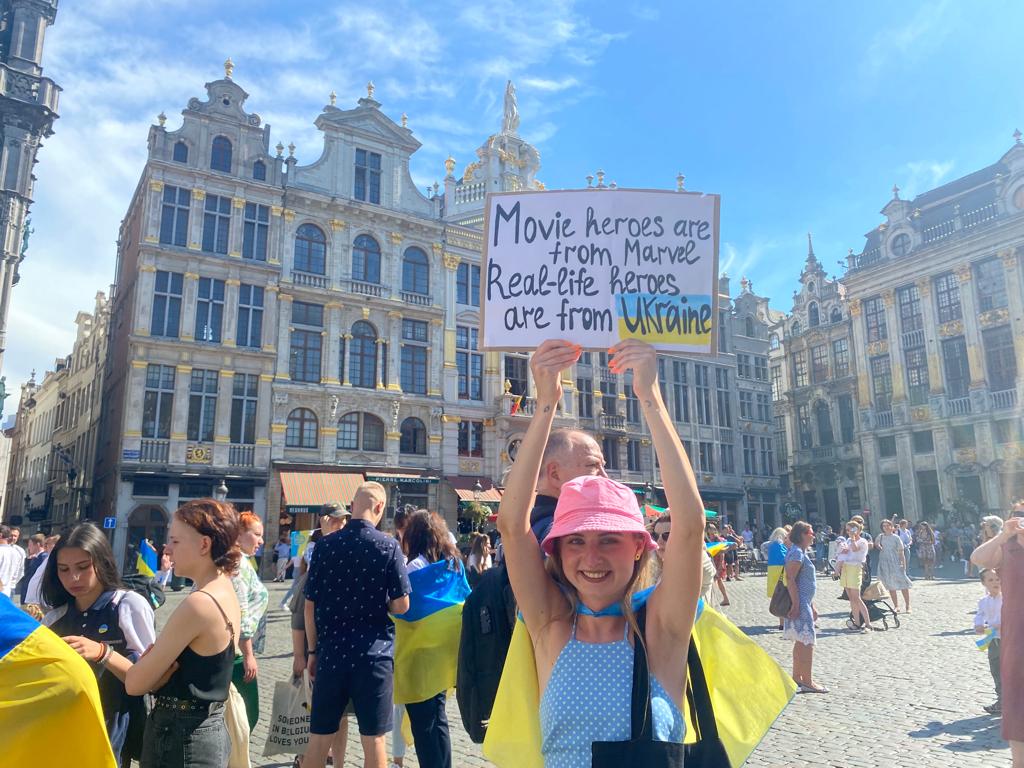 Movie heroes are
from Marvel
Real-life heroes
are from Ukraine
PIERRE MARCOLINI
SOMEONE
IN BELGIUM
LOVES YOU